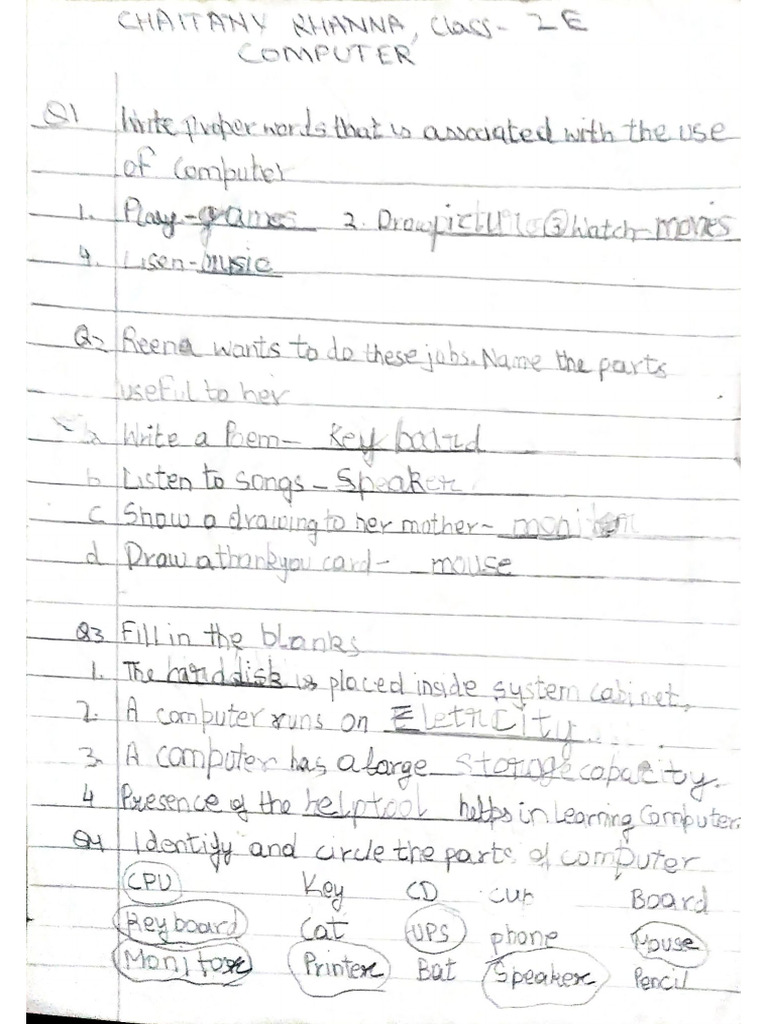 CHAITANY KHANNA, Class- 2E
COMPUTER
Q1 Write proper words that is associated with the use
of computer
1. Play-games 2. Draw picture ③ Watch-movies
4. Lisen-music
Q2 Reena wants to do these jobs. Name the parts
useful to her
a Write a Poem- Key board
b Listen to songs - Speaker
c Show a drawing to her mother- moniter
d Draw a thankyou card- mouse
Q3 Fill in the blanks
1. The hard disk is placed inside system cabinet,
2. A computer runs on Eletricity
3. A computer has a large storage capacity.
4 Presence of the help tool helps in Learning Computer.
Q4 Identify and circle the parts of computer
CPU Key CD cup Board
Keyboard Cat UPS phone Mouse
Monitor Printer Bat Speaker Pencil